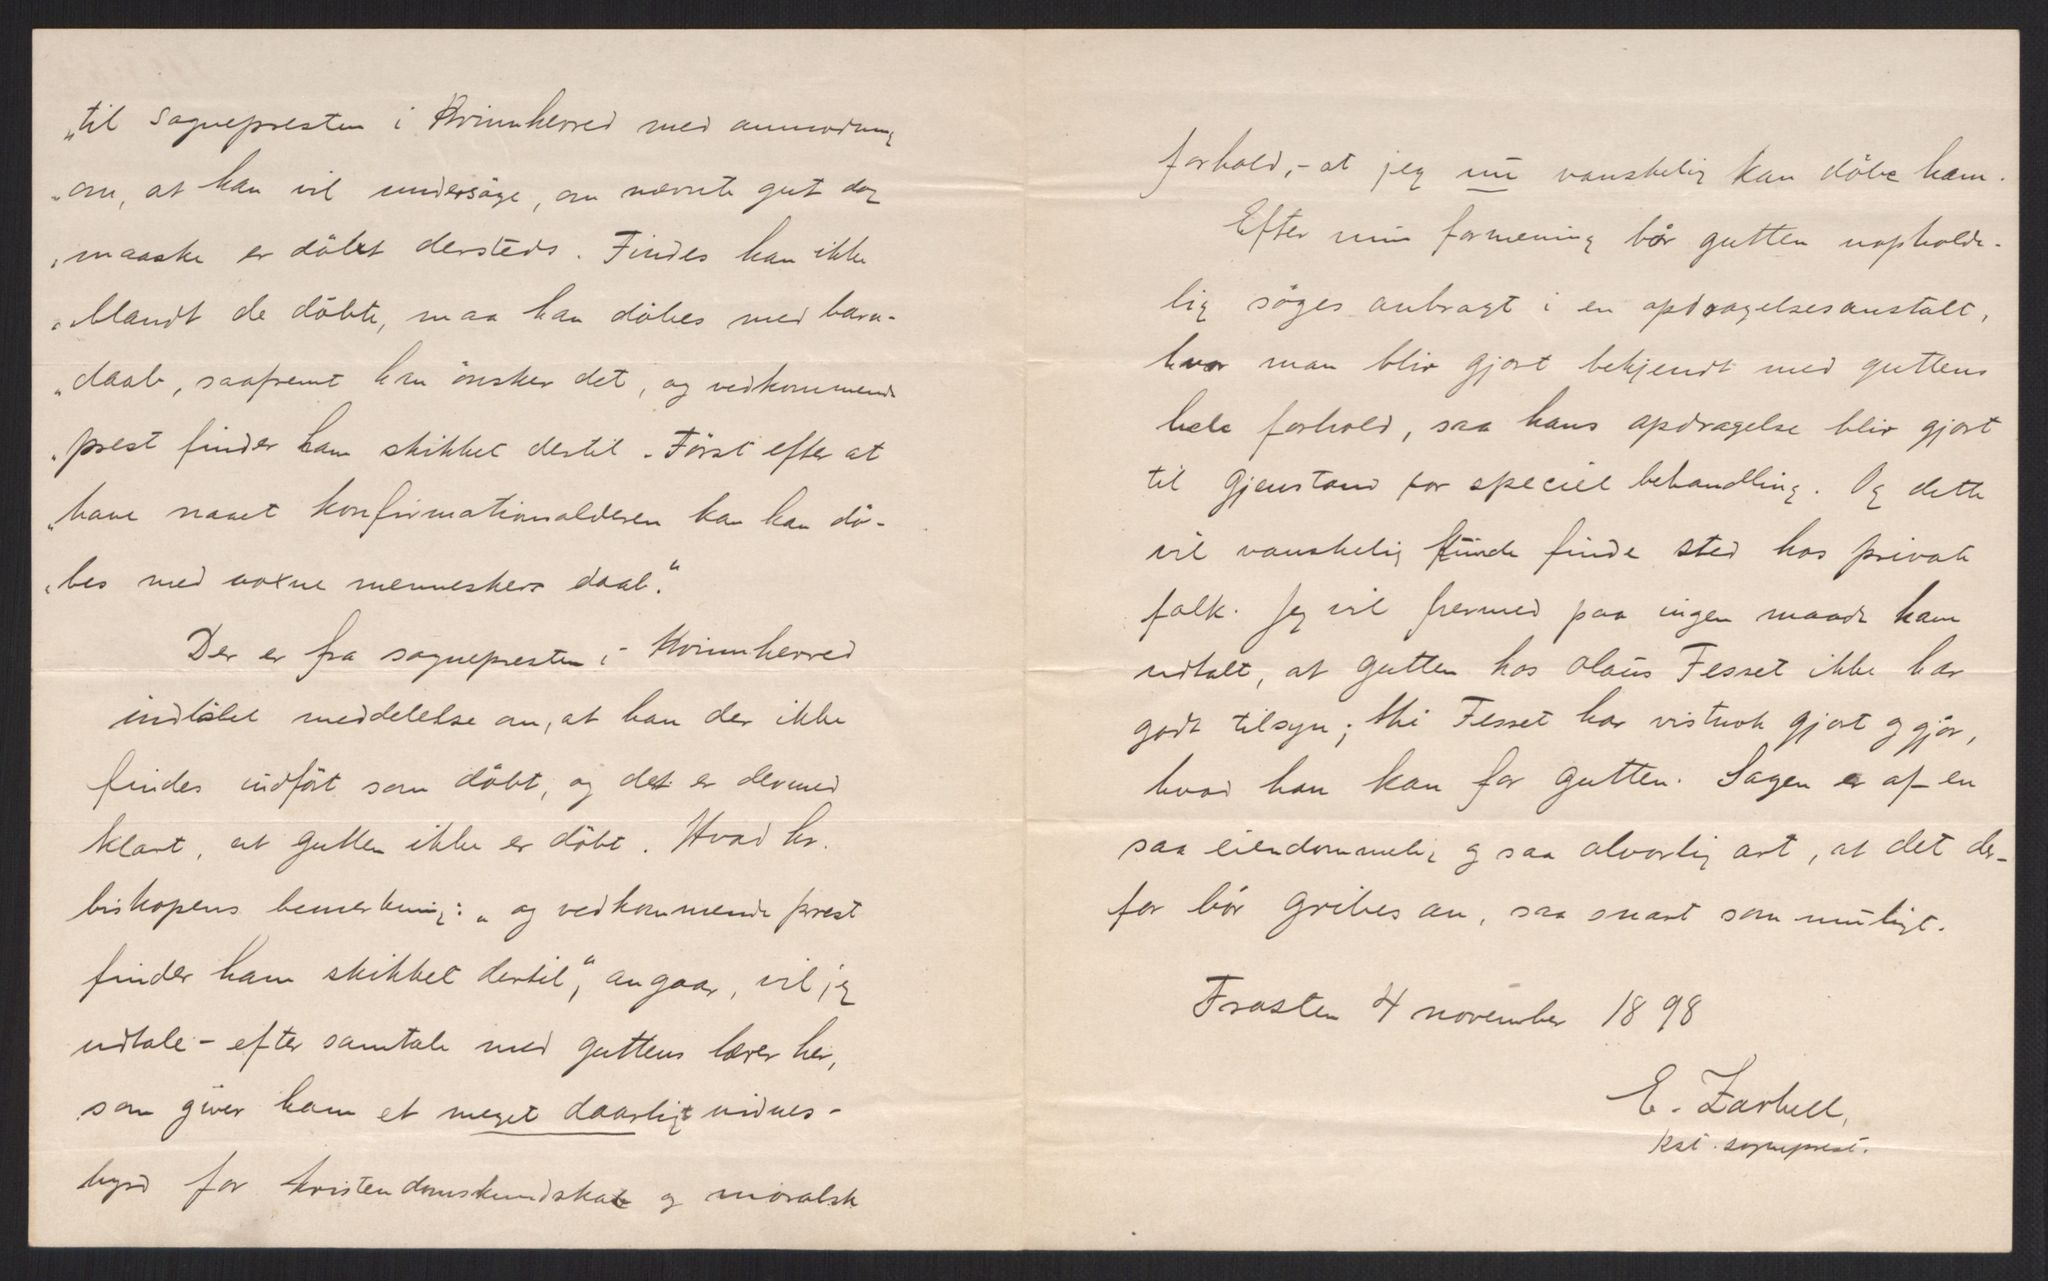 „til sognepresten i Kvinnherred med anmodning
„om, at han vil undersöge, om nævnte gut dog
„maaske er döbt dersteds. Findes han ikke
„blandt de döbte, maa han döbes med barn-
„daab, saafremt han önsker det, og vedkommende
„prest finder ham skikket dertil. Först efter at
„have naaet konfirmationsalderen kan han dö-
„bes med voxne menneskers daab.“
Der er fra sognepresten i Kvinnherred
indlöbet meddelelse om, at han der ikke
findes indfört som döbt, og det er dermed
klart, at gutten ikke er döbt. Hvad hr.
biskopens bemerkning: „og vedkommende prest
finder ham skikket dertil“, angaar, vil jeg
udtale - efter samtale med guttens lærer her,
som giver ham et meget daarligt vidnes-
byrd for kristendomskundskab og moralsk
forhold, - at jeg nu vanskelig kan döbe ham.
Efter min formening bör gutten uopholde-
lig söges anbragt i en opdragelsesanstalt,
hvor man blir gjort bekjendt med guttens
hele forhold, saa hans opdragelse blir gjort
til gjenstand for speciel behandling. Og dette
vil vanskelig kunde finde sted hos private
folk. Jeg vil hermed paa ingen maade have
udtalt, at gutten hos Olaus Fesset ikke har
godt tilsyn; thi Fesset har vistnok gjort og gjör,
hvad han kan for gutten. Sagen er af en
saa eiendommelig og saa alvorlig art, at det der-
for bör gribes an, saa snart som muligt.
Frosten 4 november 1898
E. Zarbell,
kst. sogneprest.